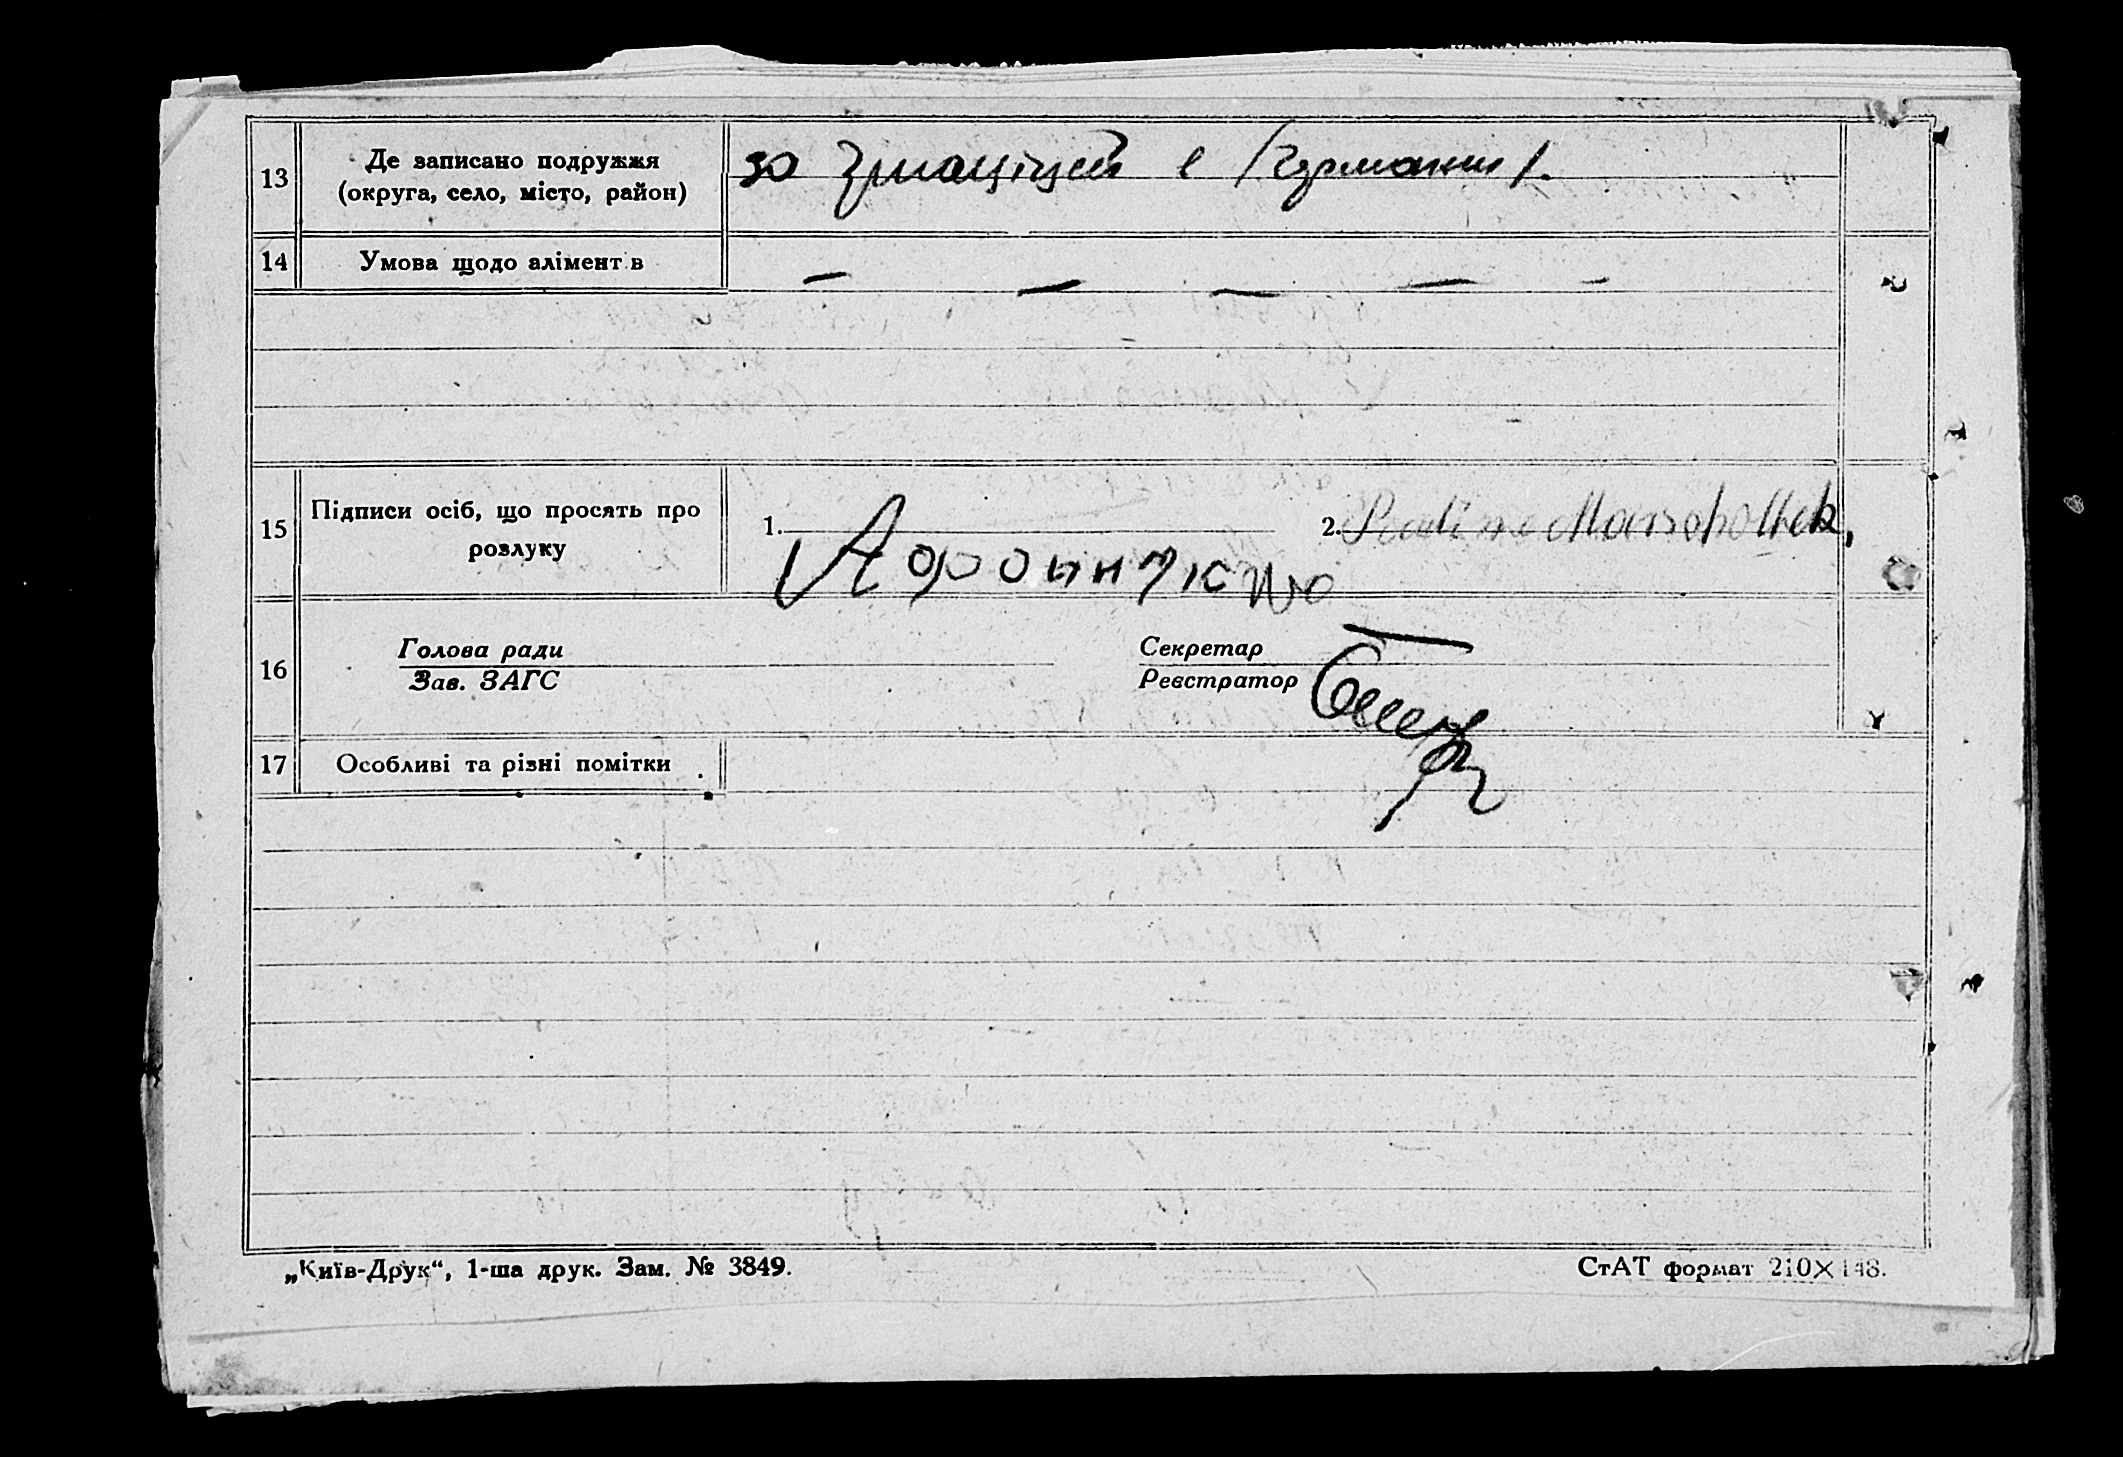 13
Де записано подружжя
(округа, село, місто, район)
за границей в /Германии/.
14
Умова щодо алімент в
15
Підписи осіб, що просять про
розлуку
1.
2. Pauline
16
Голова ради
Зав. ЗАГС
Секретар
Реєстратор
17
Особливі та різні помітки
„Київ-Друк“, 1-ша друк. Зам. № 3849.
СтАТ формат 210×148.